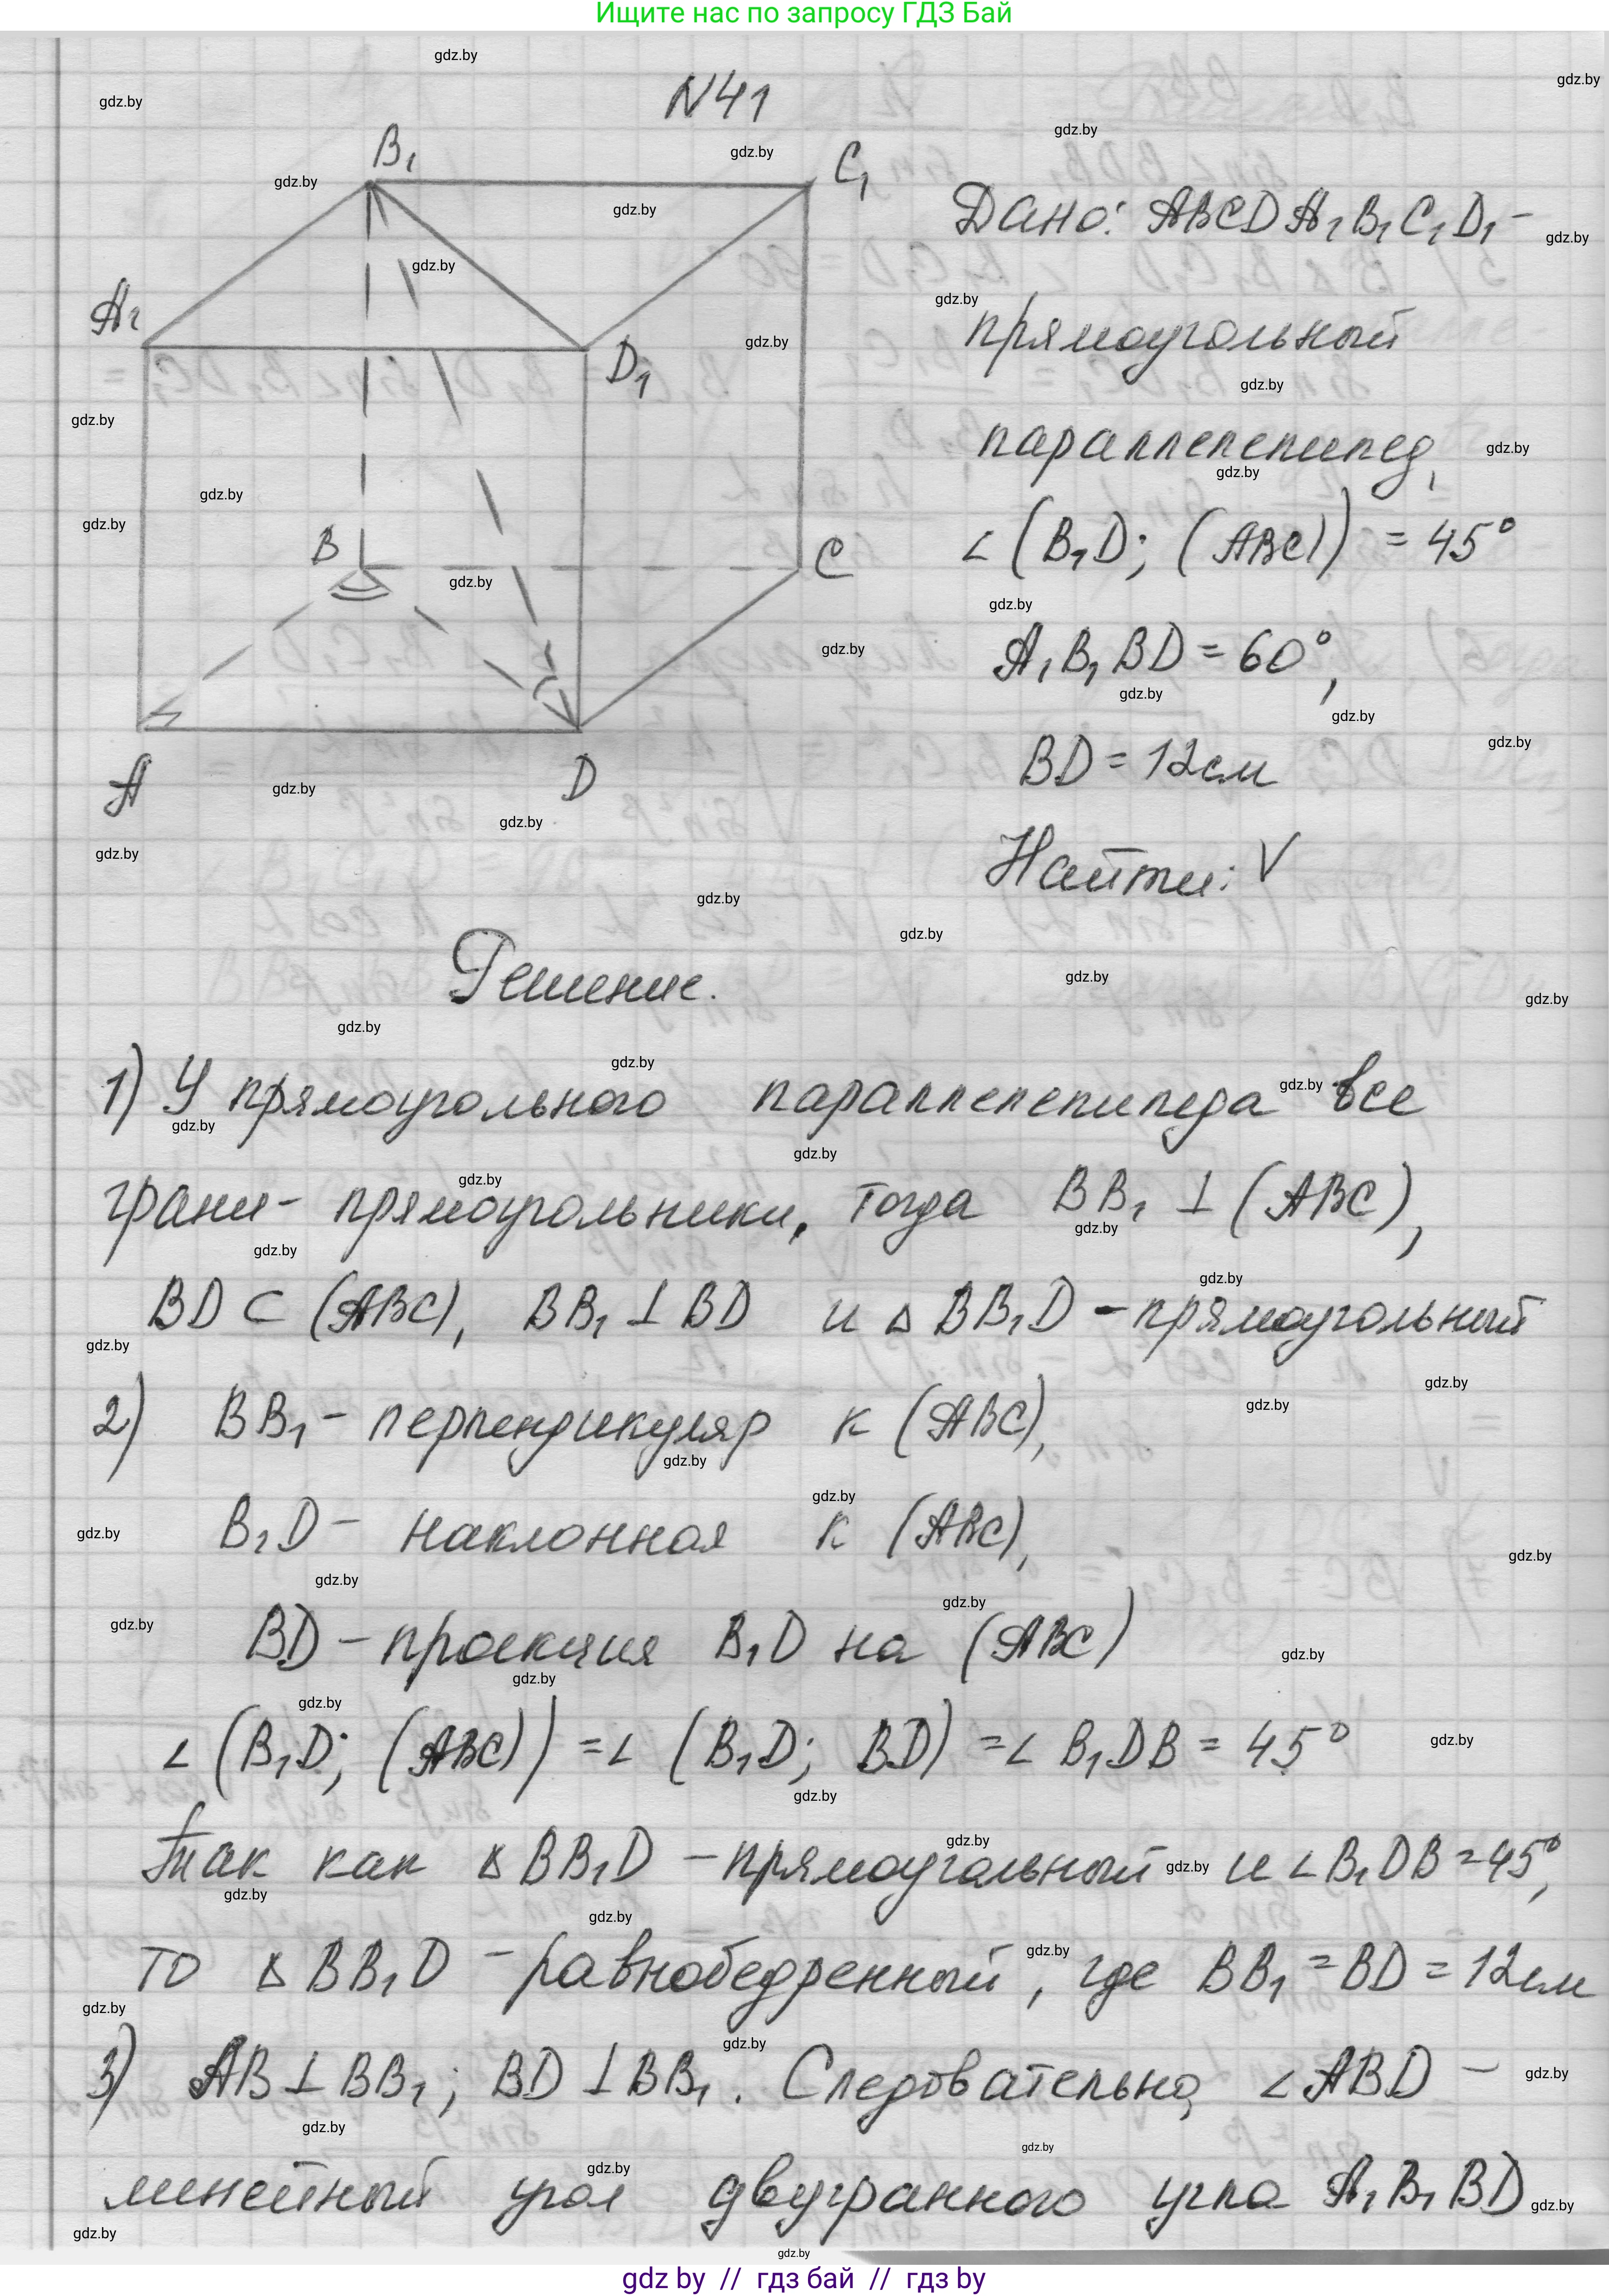 Ищите нас по запросу ГДЗ Бай
N41
B₁
C₁
A₁
D₁
B
C
A
D
Дано: ABCDA₁B₁C₁D₁ -
прямоугольный
параллелепипед,
∠(B₁D; (ABC)) = 45°
A₁B₁BD = 60°,
BD = 12см
Найти: V
Решение.
1) У прямоугольного параллелепипеда все
грани - прямоугольники, тогда BB₁ ⊥ (ABC),
BD ⊂ (ABC), BB₁ ⊥ BD и △BB₁D - прямоугольный
2) BB₁ - перпендикуляр к (ABC),
B₁D - наклонная к (ABC),
BD - проекция B₁D на (ABC)
∠(B₁D; (ABC)) = ∠(B₁D; BD) = ∠B₁DB = 45°
Так как △BB₁D - прямоугольный и ∠B₁DB = 45°,
то △BB₁D - равнобедренный, где BB₁ = BD = 12см
3) AB ⊥ BB₁; BD ⊥ BB₁. Следовательно, ∠ABD -
линейный угол двугранного угла A₁B₁BD
gdz by // гдз бай // гдз by